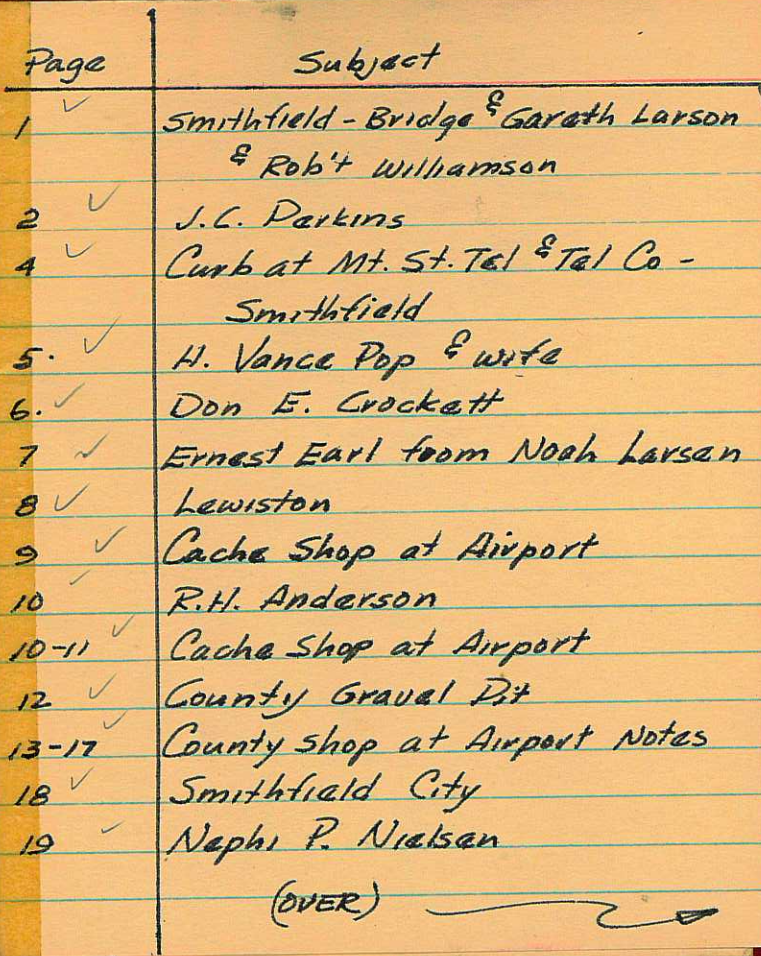 Page Subject
1 ✓ Smithfield - Bridge & Gareth Larson
& Rob't Williamson
2 ✓ J.C. Perkins
4 ✓ Curb at Mt. St. Tel & Tel Co -
Smithfield
5. ✓ H. Vance Pop & wife
6. ✓ Don E. Crockett
7 ✓ Ernest Earl from Noah Larsen
8 ✓ Lewiston
9 ✓ Cache Shop at Airport
10 ✓ R.H. Anderson
10-11 ✓ Cache Shop at Airport
12 ✓ County Gravel Pit
13-17 ✓ County Shop at Airport Notes
18 ✓ Smithfield City
19 ✓ Nephi P. Nielsen
(OVER)